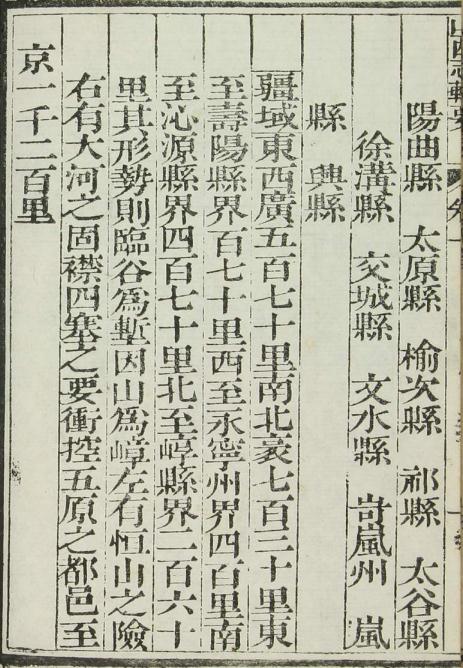 陽曲縣　太原縣　榆次縣　祁縣　太谷縣
徐溝縣　交城縣　文水縣　岢嵐州　嵐
縣　興縣
疆域東西廣五百七十里南北袤七百三十里東
至壽陽縣界百七十里西至永寧州界四百里南
至沁源縣界四百七十里北至崞縣界二百六十
里其形勢則臨谷爲塹因山爲嶂左有恒山之險
右有大河之固襟四塞之要衝控五原之都邑至
京一千二百里